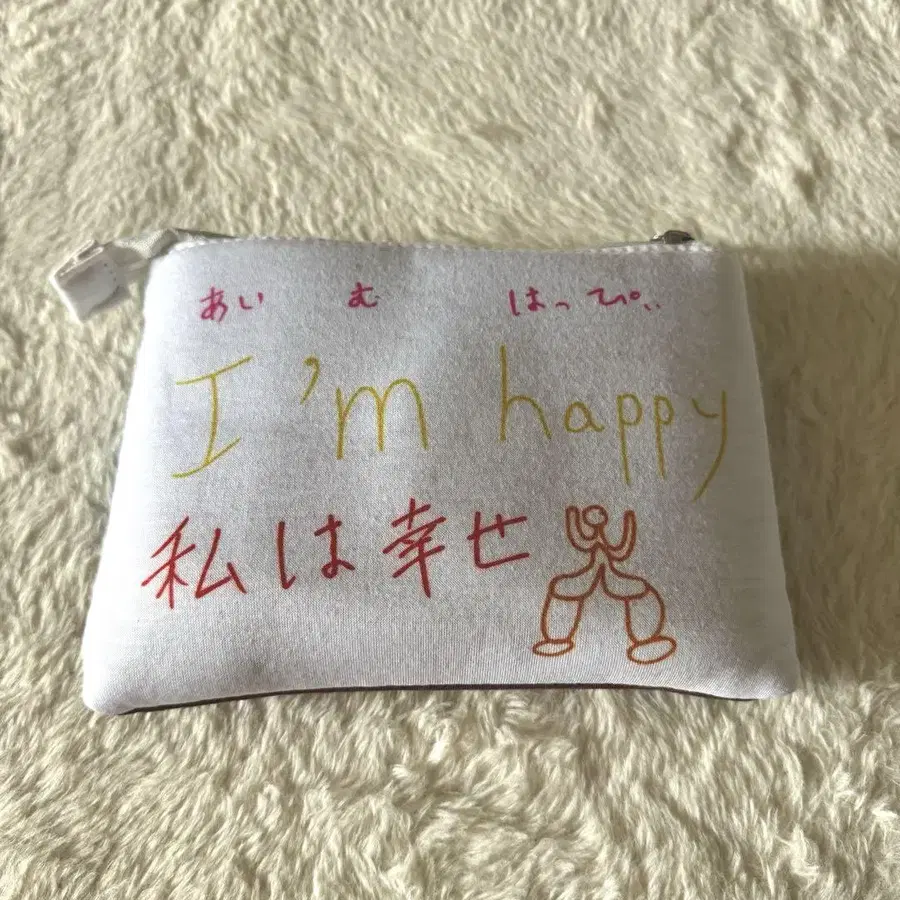 あい む はっぴぃ
I'm happy
私は幸せ